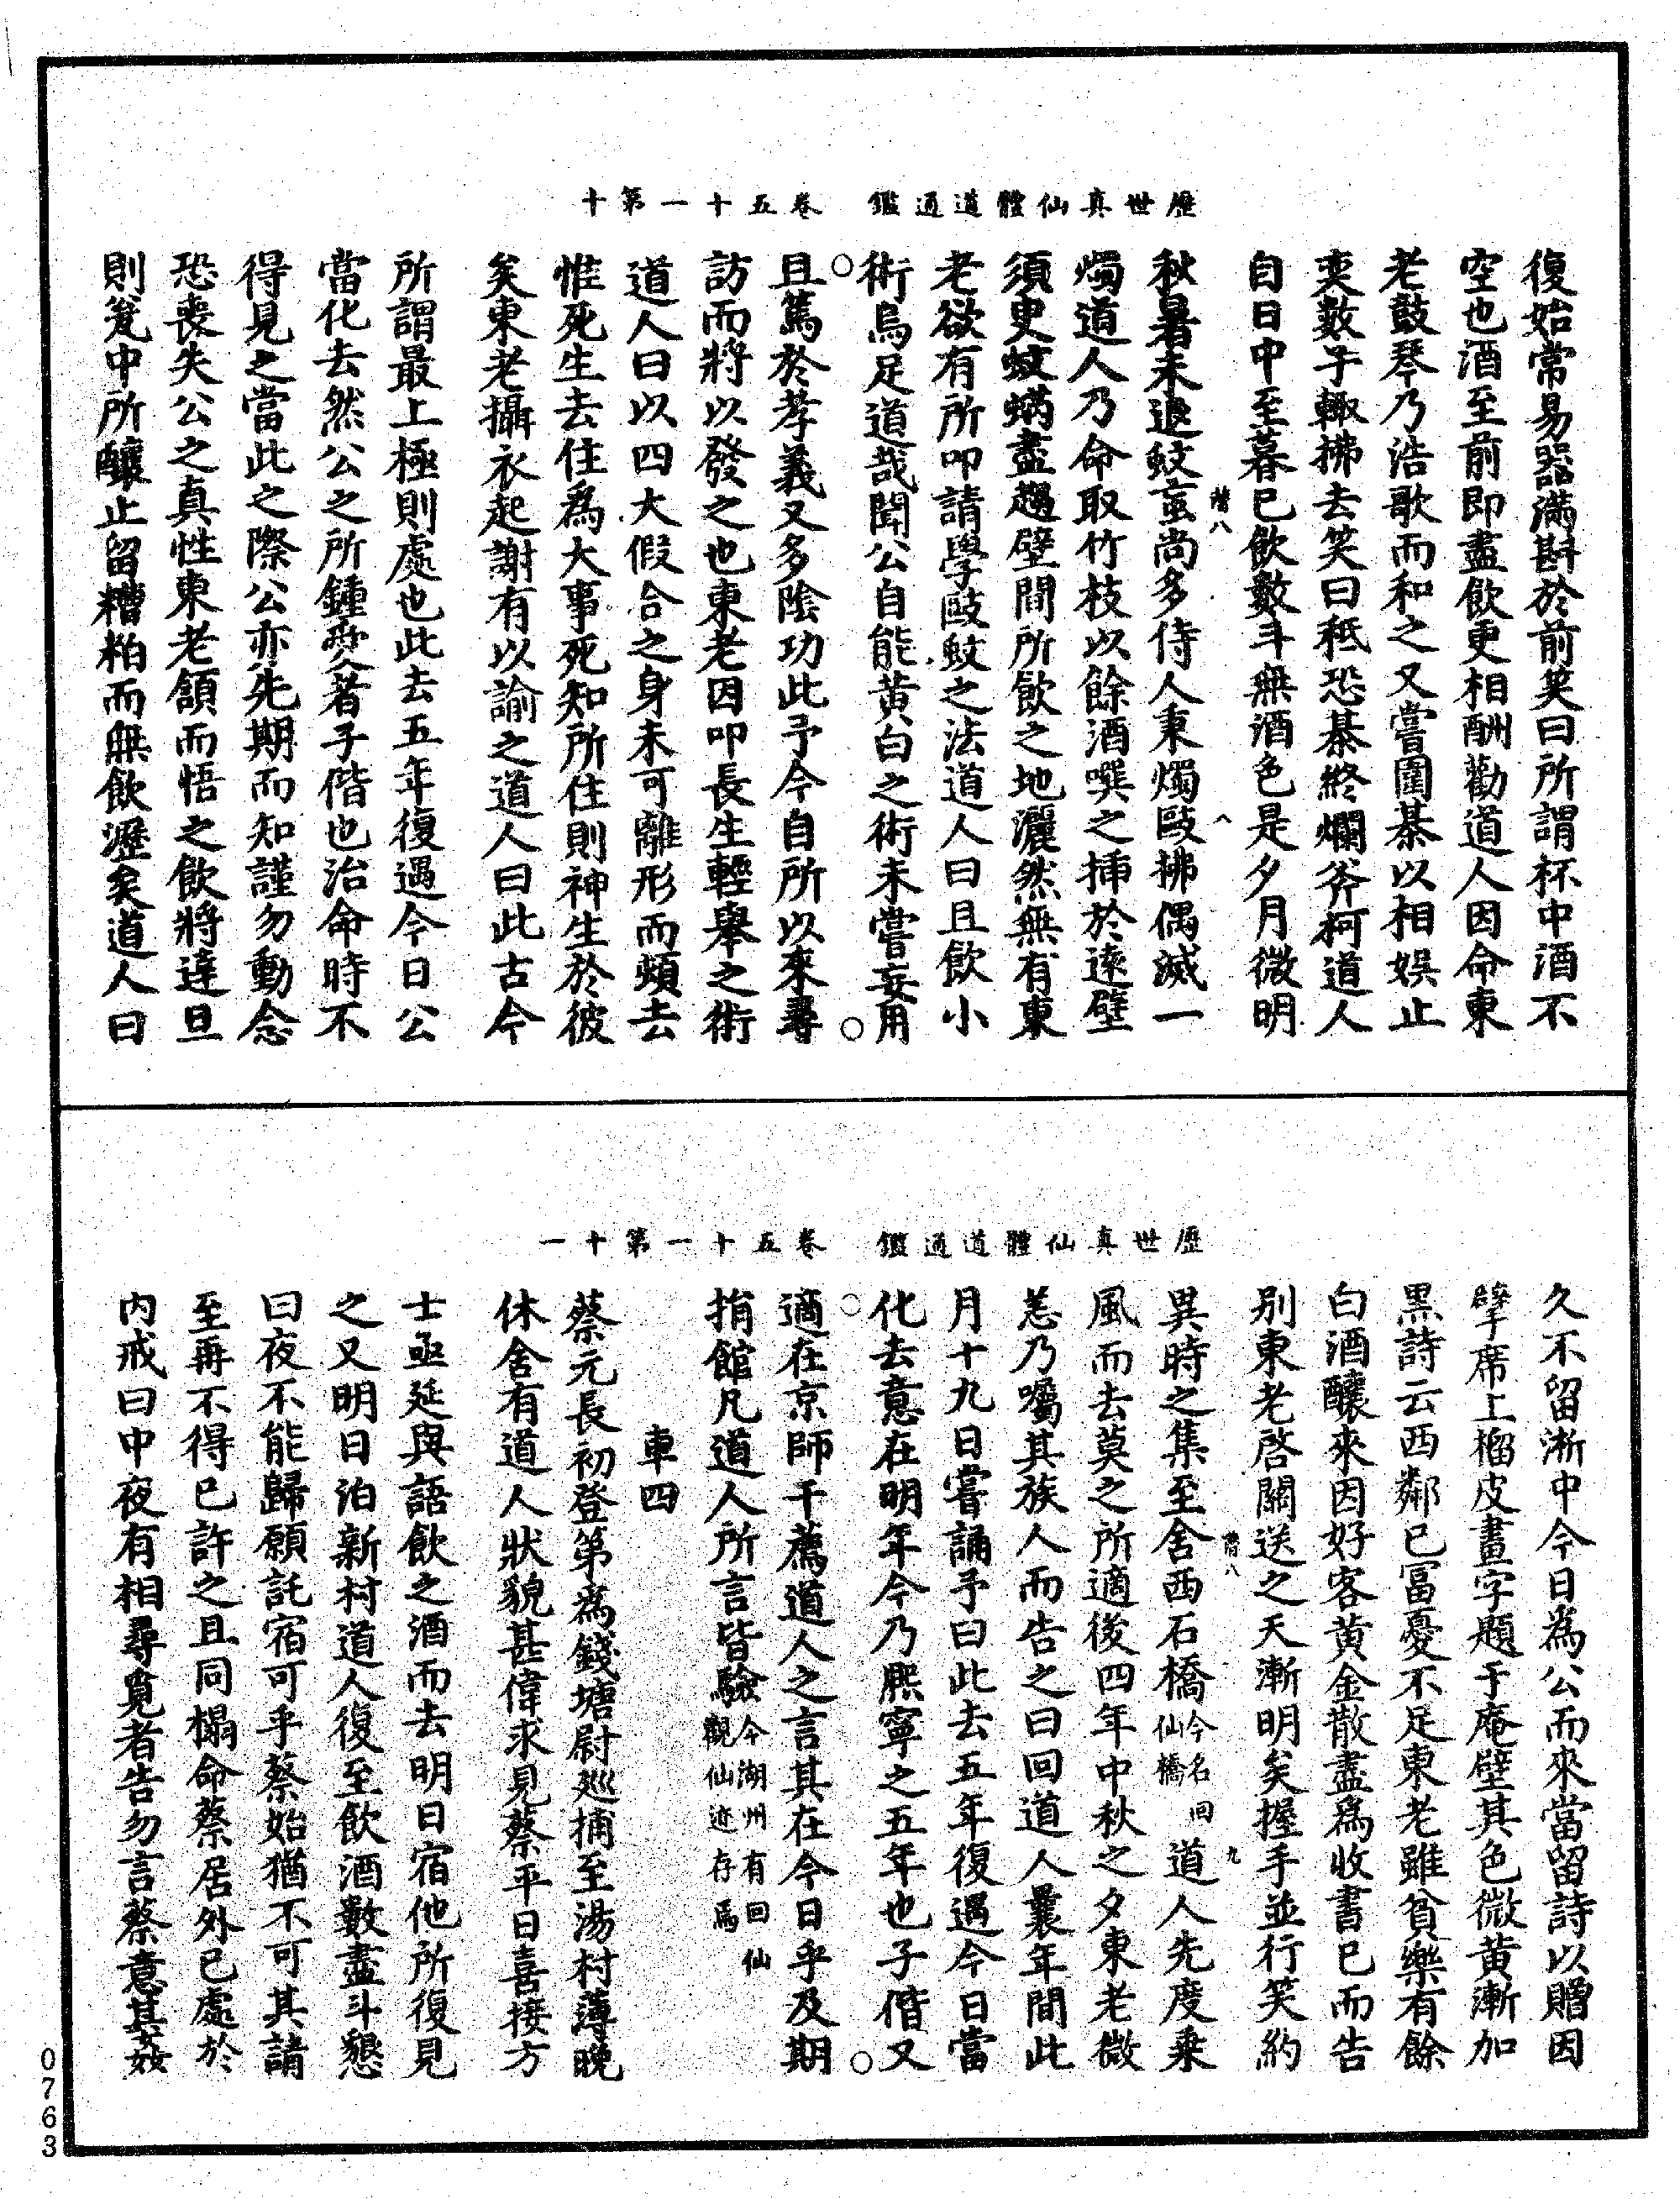 歷世真仙體道通鑑　卷五十一第十
復始常易器滿斟於前笑曰所謂杯中酒不
空也酒至前即盡飲更相酬勸道人因命東
老鼓琴乃浩歌而和之又嘗圍棊以相娛止
奕數子輒拂去笑曰秪恐棊終爛斧柯道人
自日中至暮已飲數斗無酒色是夕月微明
階八
八
秋暑未退蚊䖟尚多侍人秉燭敺拂偶滅一
燭道人乃命取竹枝以餘酒噀之揷於遠壁
須臾蚊蚋盡趨壁間所飲之地灑然無有東
老欲有所叩請學敺蚊之法道人曰且飲小
術烏足道哉聞公自能黃白之術未嘗妄用
且篤於孝義又多陰功此予今自所以來尋
訪而將以發之也東老因叩長生輕舉之術
道人曰以四大假合之身未可離形而頻去
惟死生去住爲大事死知所住則神生於彼
矣東老攝衣起謝有以諭之道人曰此古今
所謂最上極則處也此去五年復遇今日公
當化去然公之所鍾愛者子偕也治命時不
得見之當此之際公亦先期而知謹勿動念
恐喪失公之真性東老頷而悟之飲將達旦
則瓮中所釀止留糟粕而無飲瀝矣道人曰
歷世真仙體道通鑑　卷五十一第十一
久不留淅中今日爲公而來當留詩以贈因
擘席上榴皮畫字題于庵壁其色微黃漸加
黑詩云西鄰已冨憂不足東老雖貧樂有餘
白酒釀來因好客黃金散盡爲收書已而告
別東老啓關送之天漸明矣握手並行笑約
階八
九
異時之集至舍西石橋今名回仙橋道人先度乗
風而去莫之所適後四年中秋之夕東老微
恙乃囑其族人而告之曰回道人曩年間此
月十九日嘗誦予曰此去五年復遇今日當
化去意在明年今乃熙寧之五年也子偕又
適在京師干薦道人之言其在今日乎及期
捐館凡道人所言皆驗今湖州有回仙觀仙迹存焉
車四
蔡元長初登第爲錢塘尉廵捕至湯村薄晚
休舍有道人狀貌甚偉求見蔡平日喜接方
士亟延與語飲之酒而去明日宿他所復見
之又明日泊新村道人復至飲酒數盡斗懇
曰夜不能歸願託宿可乎蔡始猶不可其請
至再不得已許之且同榻命蔡居外已處於
內戒曰中夜有相尋覓者告勿言蔡意其姦
0763